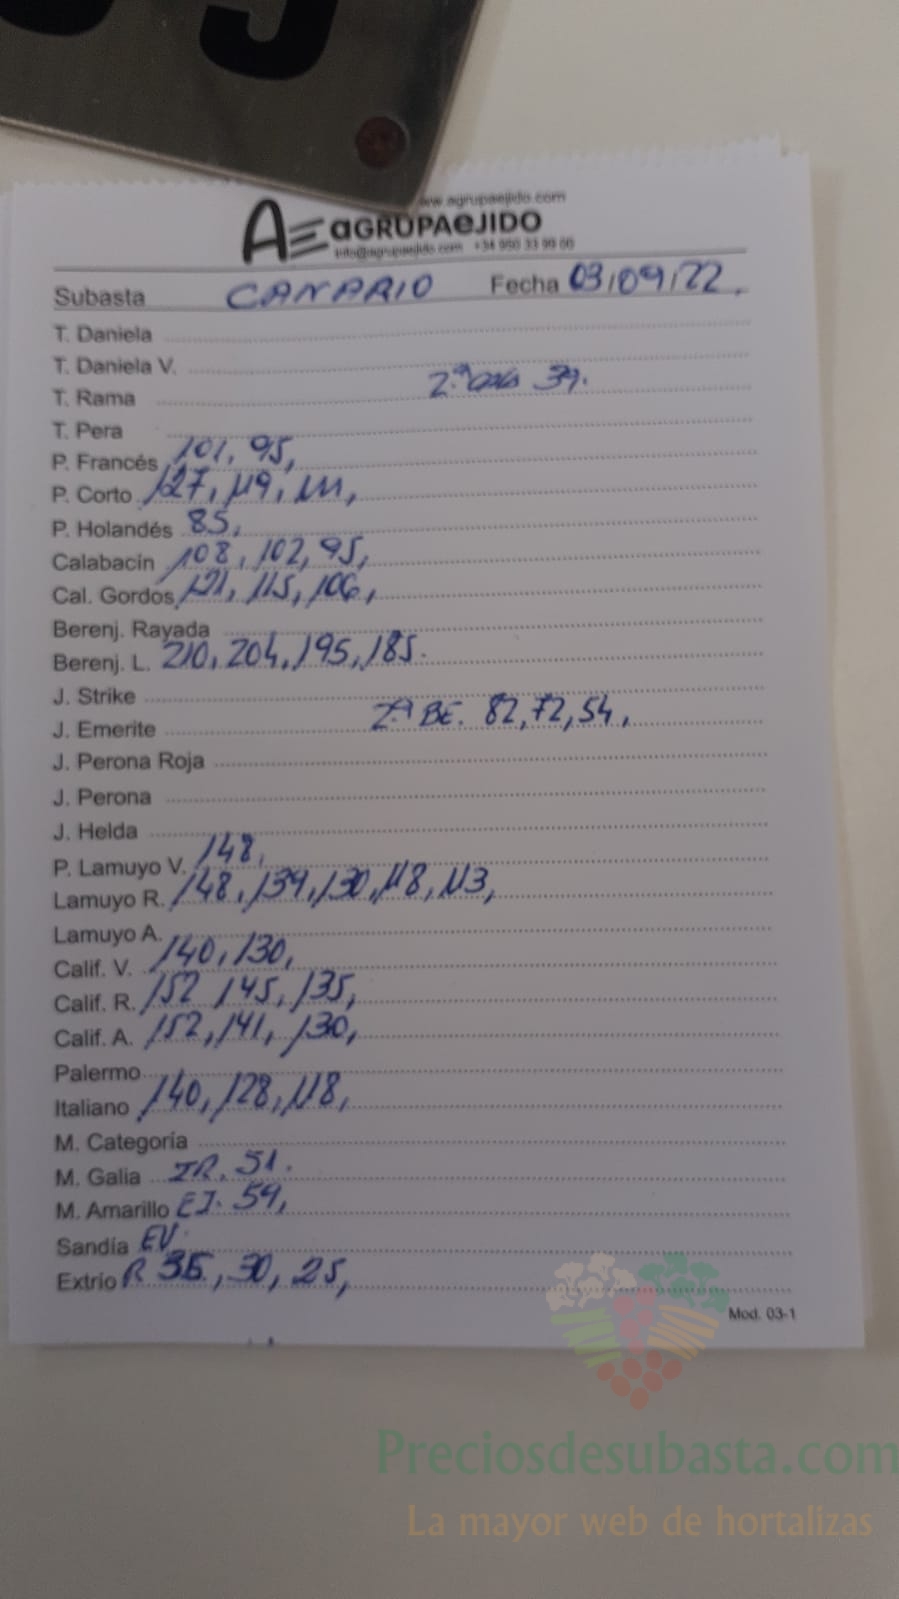 www.agrupaejido.com
AE aGRUPAeJIDO
info@agrupaejido.com +34 950 33 99 00
Subasta CANARIO Fecha 03/09/22.
T. Daniela
T. Daniela V.
T. Rama 2.ª 39.
T. Pera
P. Francés 101, 95,
P. Corto 127, 119, 111,
P. Holandés 85,
Calabacín 108, 102, 95,
Cal. Gordos 121, 115, 106,
Berenj. Rayada
Berenj. L. 210, 204, 195, 185.
J. Strike
J. Emerite 2.ª BE. 82, 72, 54,
J. Perona Roja
J. Perona
J. Helda
P. Lamuyo V. 148,
Lamuyo R. 148, 139, 130, 118, 113,
Lamuyo A.
Calif. V. 140, 130,
Calif. R. 152 145, 135,
Calif. A. 152, 141, 130,
Palermo
Italiano 140, 128, 118,
M. Categoría
M. Galia 51.
M. Amarillo EJ. 59,
Sandía EV.
Extrio R 35, 30, 25,
Mod. 03-1
Preciosdesubasta.com
La mayor web de hortalizas